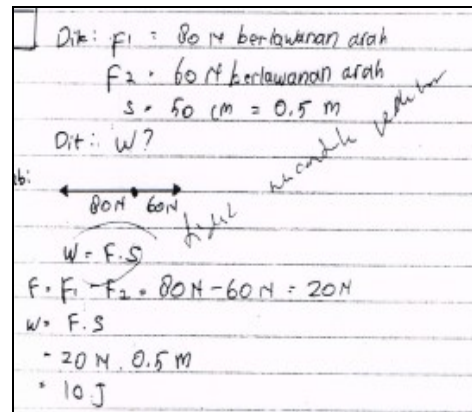 Dik: F1 = 80 N berlawanan arah
F2 = 60 N berlawanan arah
S = 50 cm = 0.5 m
Dit: W?
80N 60N
W = F.S
F = F1 - F2 = 80 N - 60 N = 20 N
W = F.S
= 20 N . 0.5 m
= 10 J